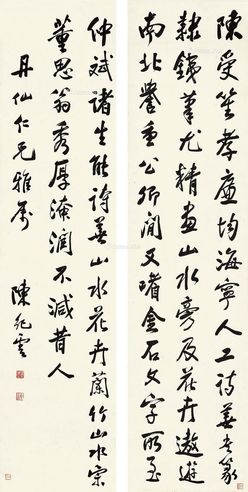 陳受笙孝廉均海寧人工詩善書篆
隸鐵筆尤精畫山水旁及花卉遨遊
南北譽重公卿間又嗜金石文字所至
仲斌諸生能詩善山水花卉蘭竹山水宗
董思翁秀厚淹潤不減昔人
丹仙仁兄雅屬
陳紀雲